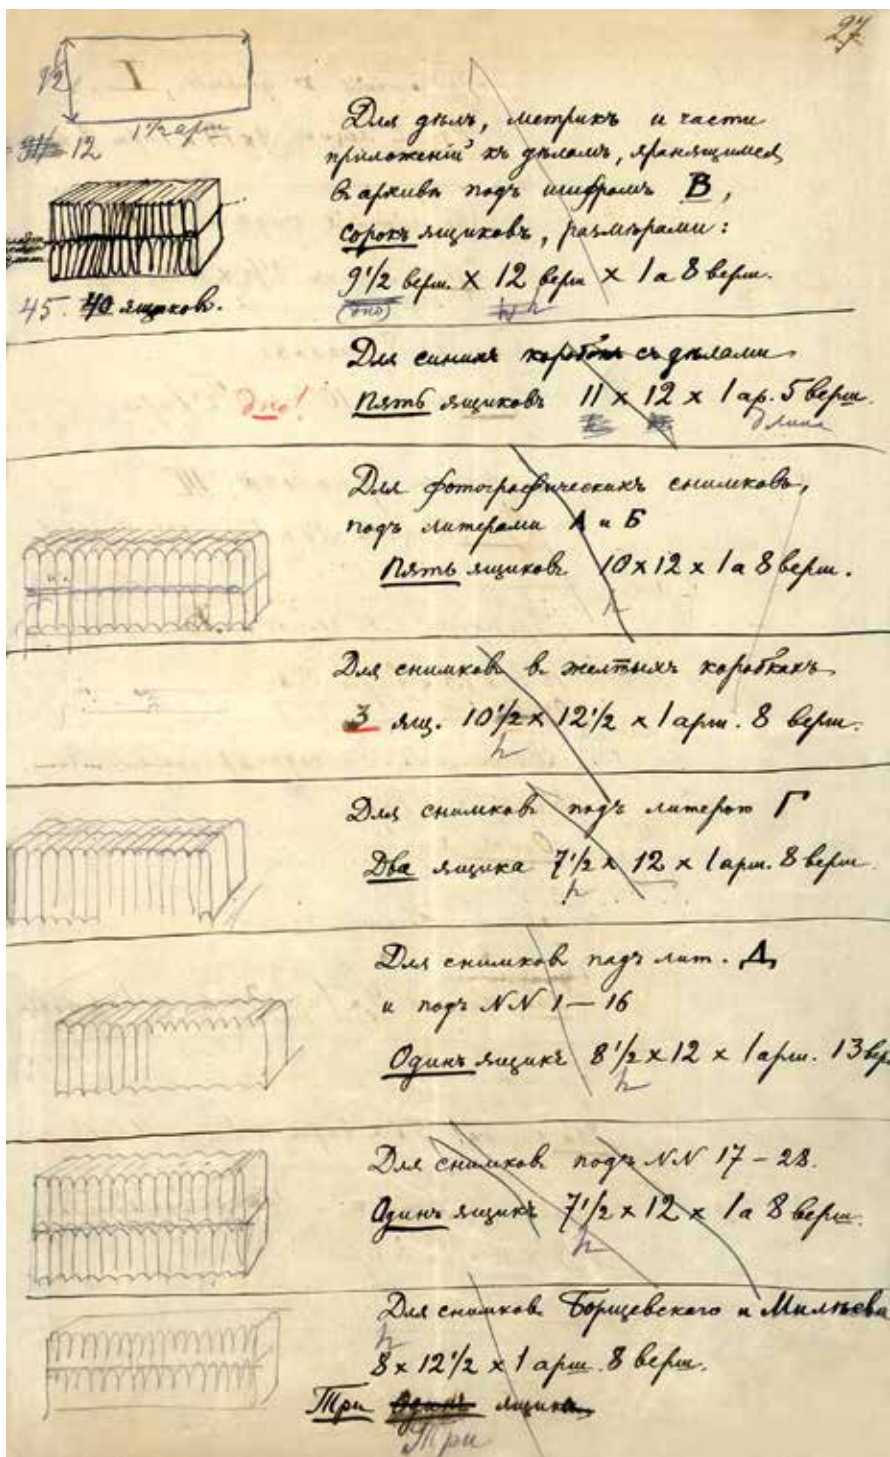 27.
I
12
1 1/2 арш
12
Для дѣлъ, метрикъ и части
приложеній къ дѣламъ, хранящимся
въ архивѣ подъ шифромъ В,
сорокъ ящиковъ, размѣрами:
9 1/2 верш. × 12 верш × 1 а 8 верш.
(дно) h
45. 40 ящиков.
Для синихъ коробокъ съ дѣлами
дно! Пять ящиковъ 11 × 12 × 1 ар. 5 верш.
длина
Для фотографическихъ снимковъ,
подъ литерами А и Б
Пять ящиковъ 10 × 12 × 1 а 8 верш.
h
Для снимковъ в желтыхъ коробкахъ
3 ящ. 10 1/2 × 12 1/2 × 1 арш. 8 верш.
h
Для снимковъ подъ литерою Г
Два ящика 7 1/2 × 12 × 1 арш. 8 верш.
h
Для снимковъ подъ лит. Д
и подъ NN 1 — 16
Одинъ ящикъ 8 1/2 × 12 × 1 арш. 13 вер
h
Для снимковъ подъ NN 17 – 28.
Одинъ ящикъ 7 1/2 × 12 × 1 а 8 верш.
h
Для снимковъ Борщевского и Милѣева
h
8 × 12 1/2 × 1 арш. 8 верш.
Три Одинъ ящика
Три